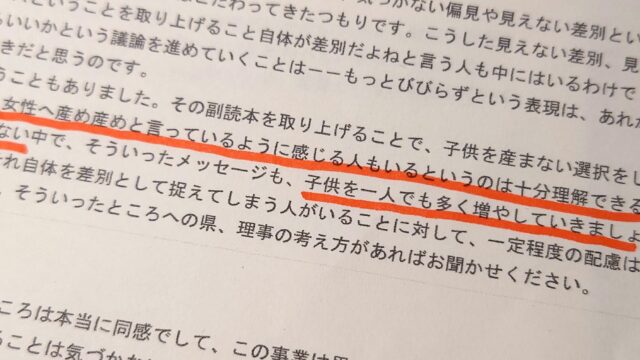 気づかない偏見や見えない差別とい
ということを取り上げること自体が差別だよねと言う人も中にはいるわけで
らいいかという議論を進めていくことは――もっとびびらずという表現は、あれか
きだと思うのです。
うこともありました。その副読本を取り上げることで、子供を産まない選択をし
女性へ産め産めと言っているように感じる人もいるというのは十分理解できる
ない中で、そういったメッセージも、子供を一人でも多く増やしていきましょ
れ自体を差別として捉えてしまう人がいることに対して、一定程度の配慮は
。そういったところへの県、理事の考え方があればお聞かせください。
ころは本当に同感でして、この事業は
ることは気づかな